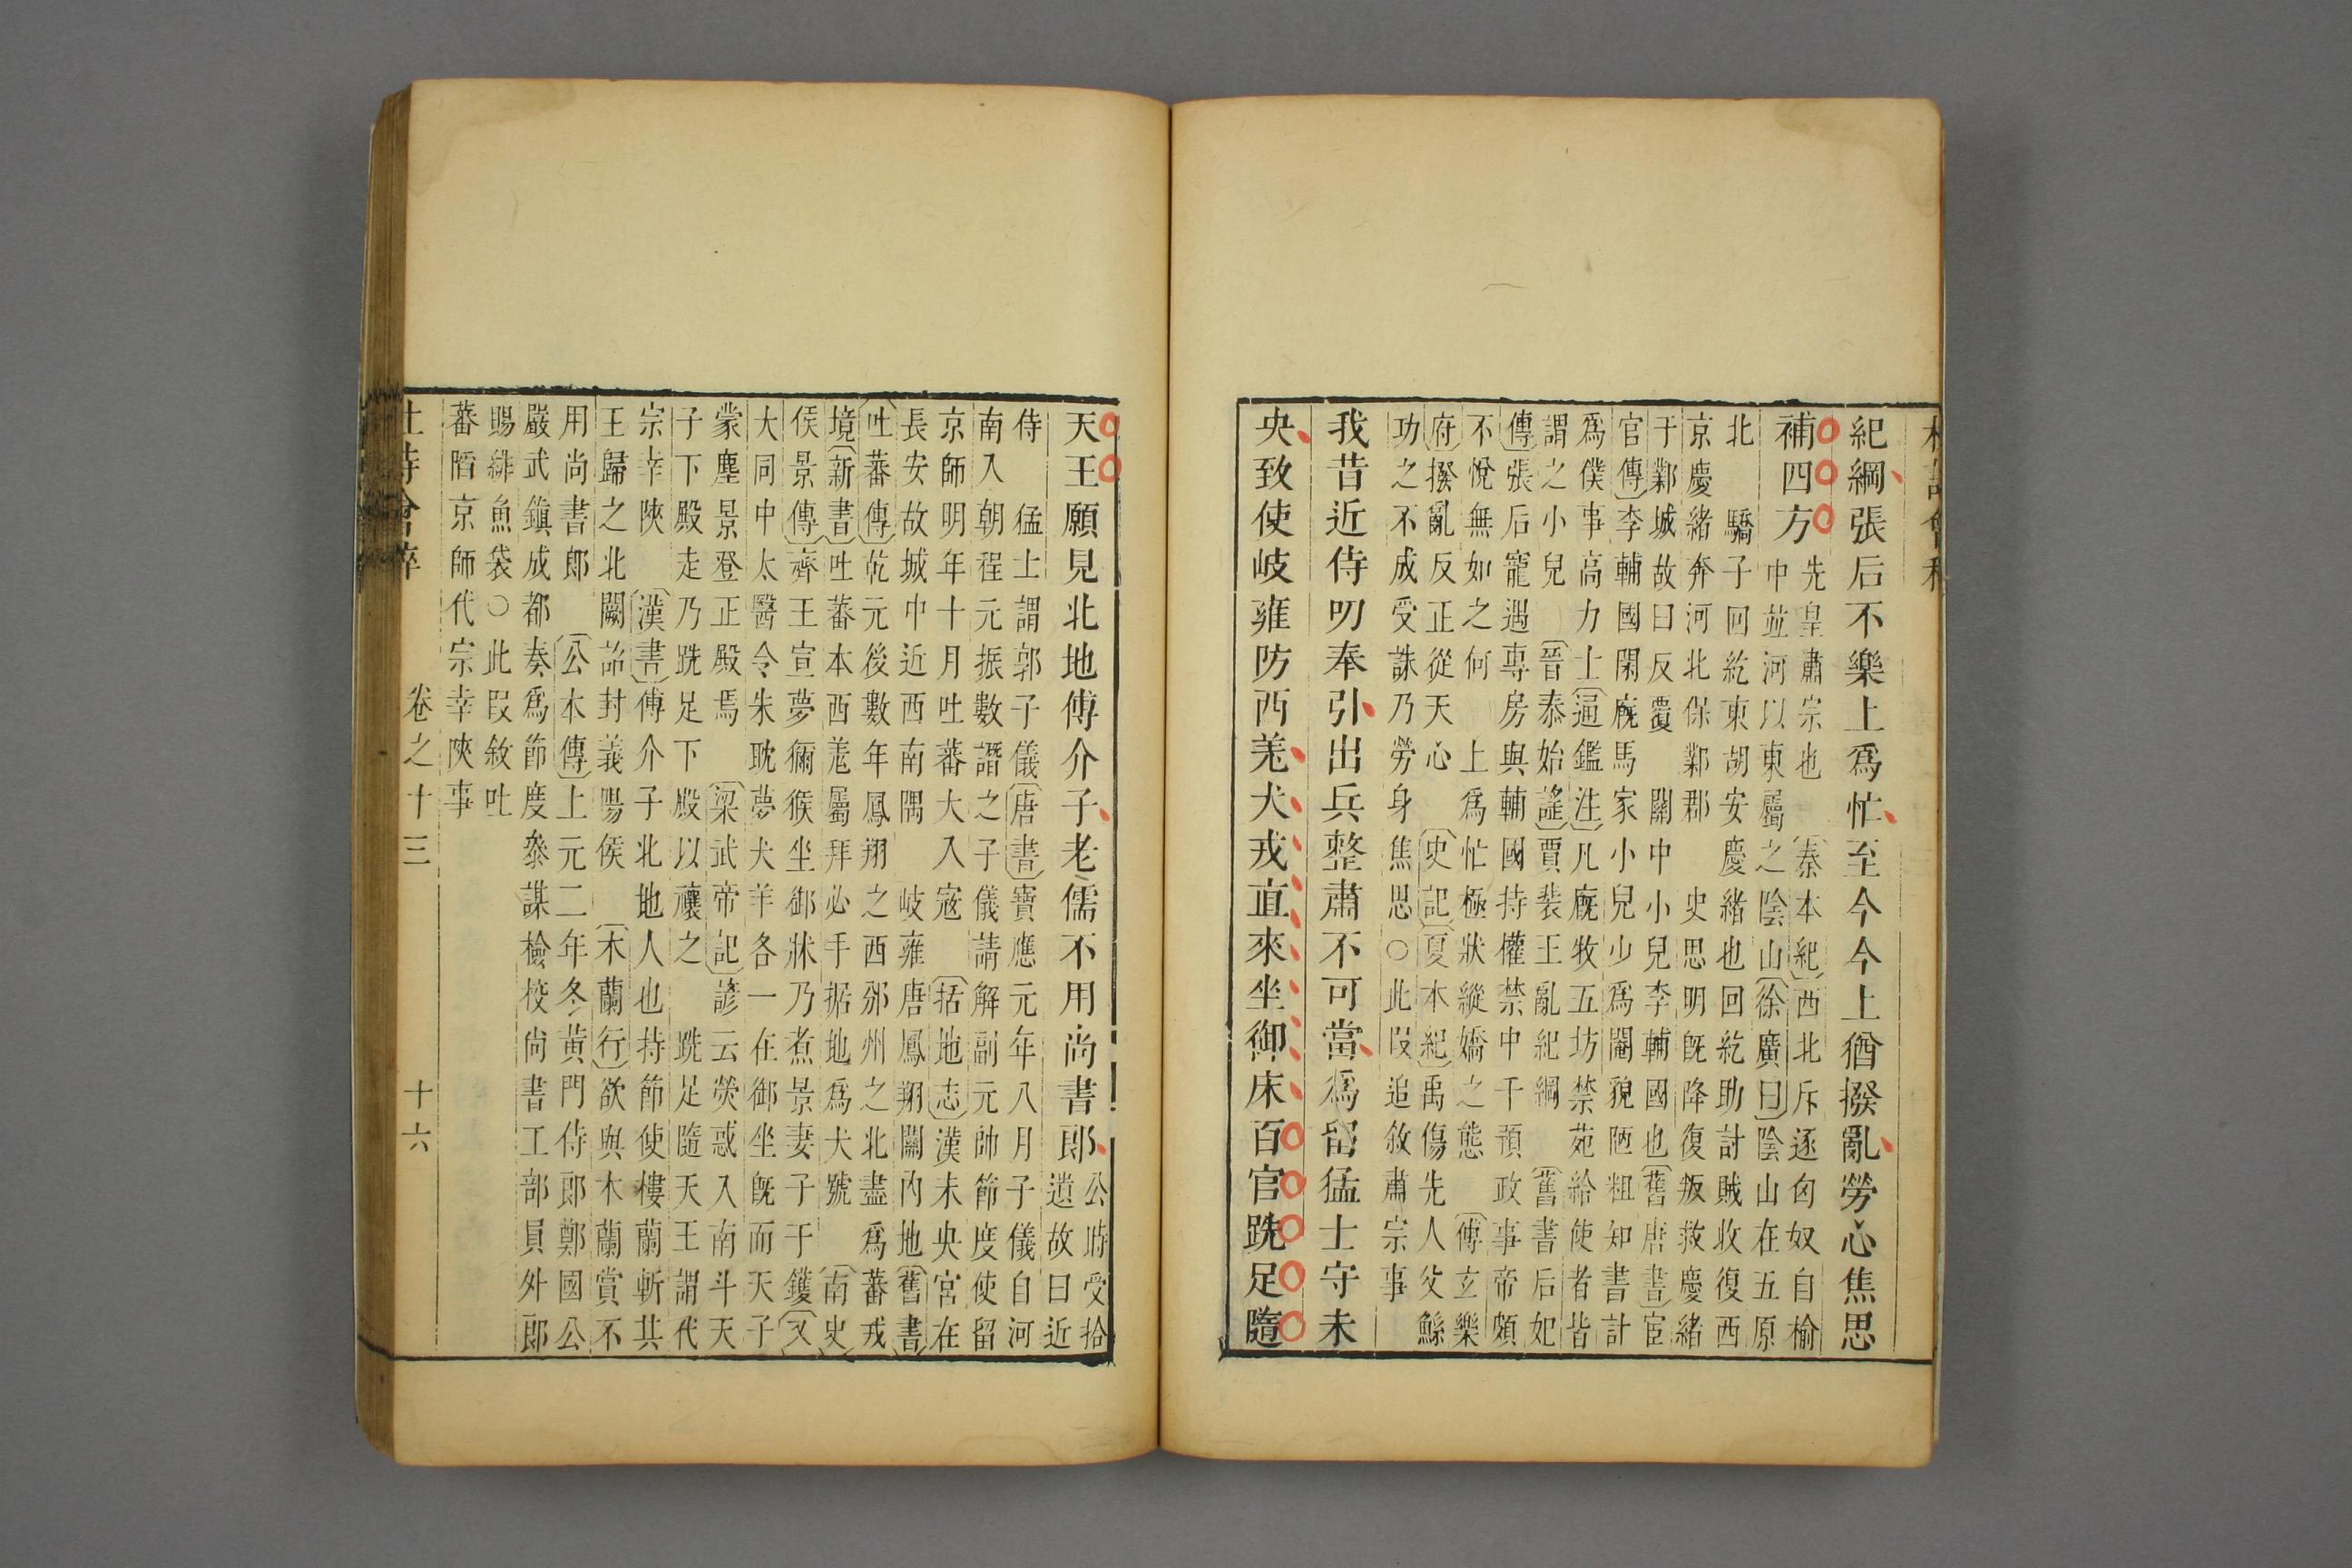 杜詩會稡
紀綱張后不樂上爲忙至今今上猶撥亂勞心焦思
補四方先皇肅宗也〔秦本紀〕西北斥逐匈奴自榆
中並河以東屬之陰山〔徐廣曰〕陰山在五原
北 驕子回紇東胡安慶緒也回紇助討賊收復西
京慶緒奔河北保鄴郡 史思明旣降復叛救慶緒
于鄴城故曰反覆 關中小兒李輔國也〔舊唐書〕宦
官傳〕李輔國閑廐馬家小兒少爲閹貌陋粗知書計
爲僕事高力士〔通鑑注〕凡廐牧五坊禁苑給使者皆
謂之小兒 〔晉泰始謠〕賈裴王亂紀綱 〔舊書后妃
傳〕張后寵遇專房與輔國持權禁中干預政事帝頗
不悅無如之何 上爲忙極狀縱嬌之態 〔傅玄樂
府〕撥亂反正從天心 〔史記〕〔夏本紀〕禹傷先人父鯀
功之不成受誅乃勞身焦思○此段追敘肅宗事
我昔近侍叨奉引出兵整肅不可當爲留猛士守未
央致使岐雍防西羌犬戎直來坐御床百官跣足隨
天王願見北地傅介子老儒不用尚書郎公時受拾
遺故曰近
侍 猛士謂郭子儀〔唐書〕寶應元年八月子儀自河
南入朝程元振數譖之子儀請解副元帥節度使留
京師明年十月吐蕃大入寇 〔括地志〕漢未央宮在
長安故城中近西南隅 岐雍唐鳳翔關內地〔舊書
吐蕃傳〕乾元後數年鳳翔之西邠州之北盡爲蕃戎
境〔新書〕吐蕃本西羌屬拜必手据地爲犬號 〔南史
侯景傳〕齊王宣夢獼猴坐御牀乃煮景妻子于鑊〔又〕
大同中太醫令朱耽夢犬羊各一在御坐旣而天子
蒙塵景登正殿焉 〔梁武帝記〕諺云熒惑入南斗天
子下殿走乃跣足下殿以禳之 跣足隨天王謂代
宗幸陜 〔漢書〕傅介子北地人也持節使樓蘭斬其
王歸之北闕詔封義陽侯 〔木蘭行〕欲與木蘭賞不
用尚書郎 〔公本傳〕上元二年冬黃門侍郎鄭國公
嚴武鎮成都奏爲節度參謀檢校尚書工部員外郎
賜緋魚袋○此段敘吐
蕃䧟京師代宗幸陜事
杜詩會稡 卷之十三 十六